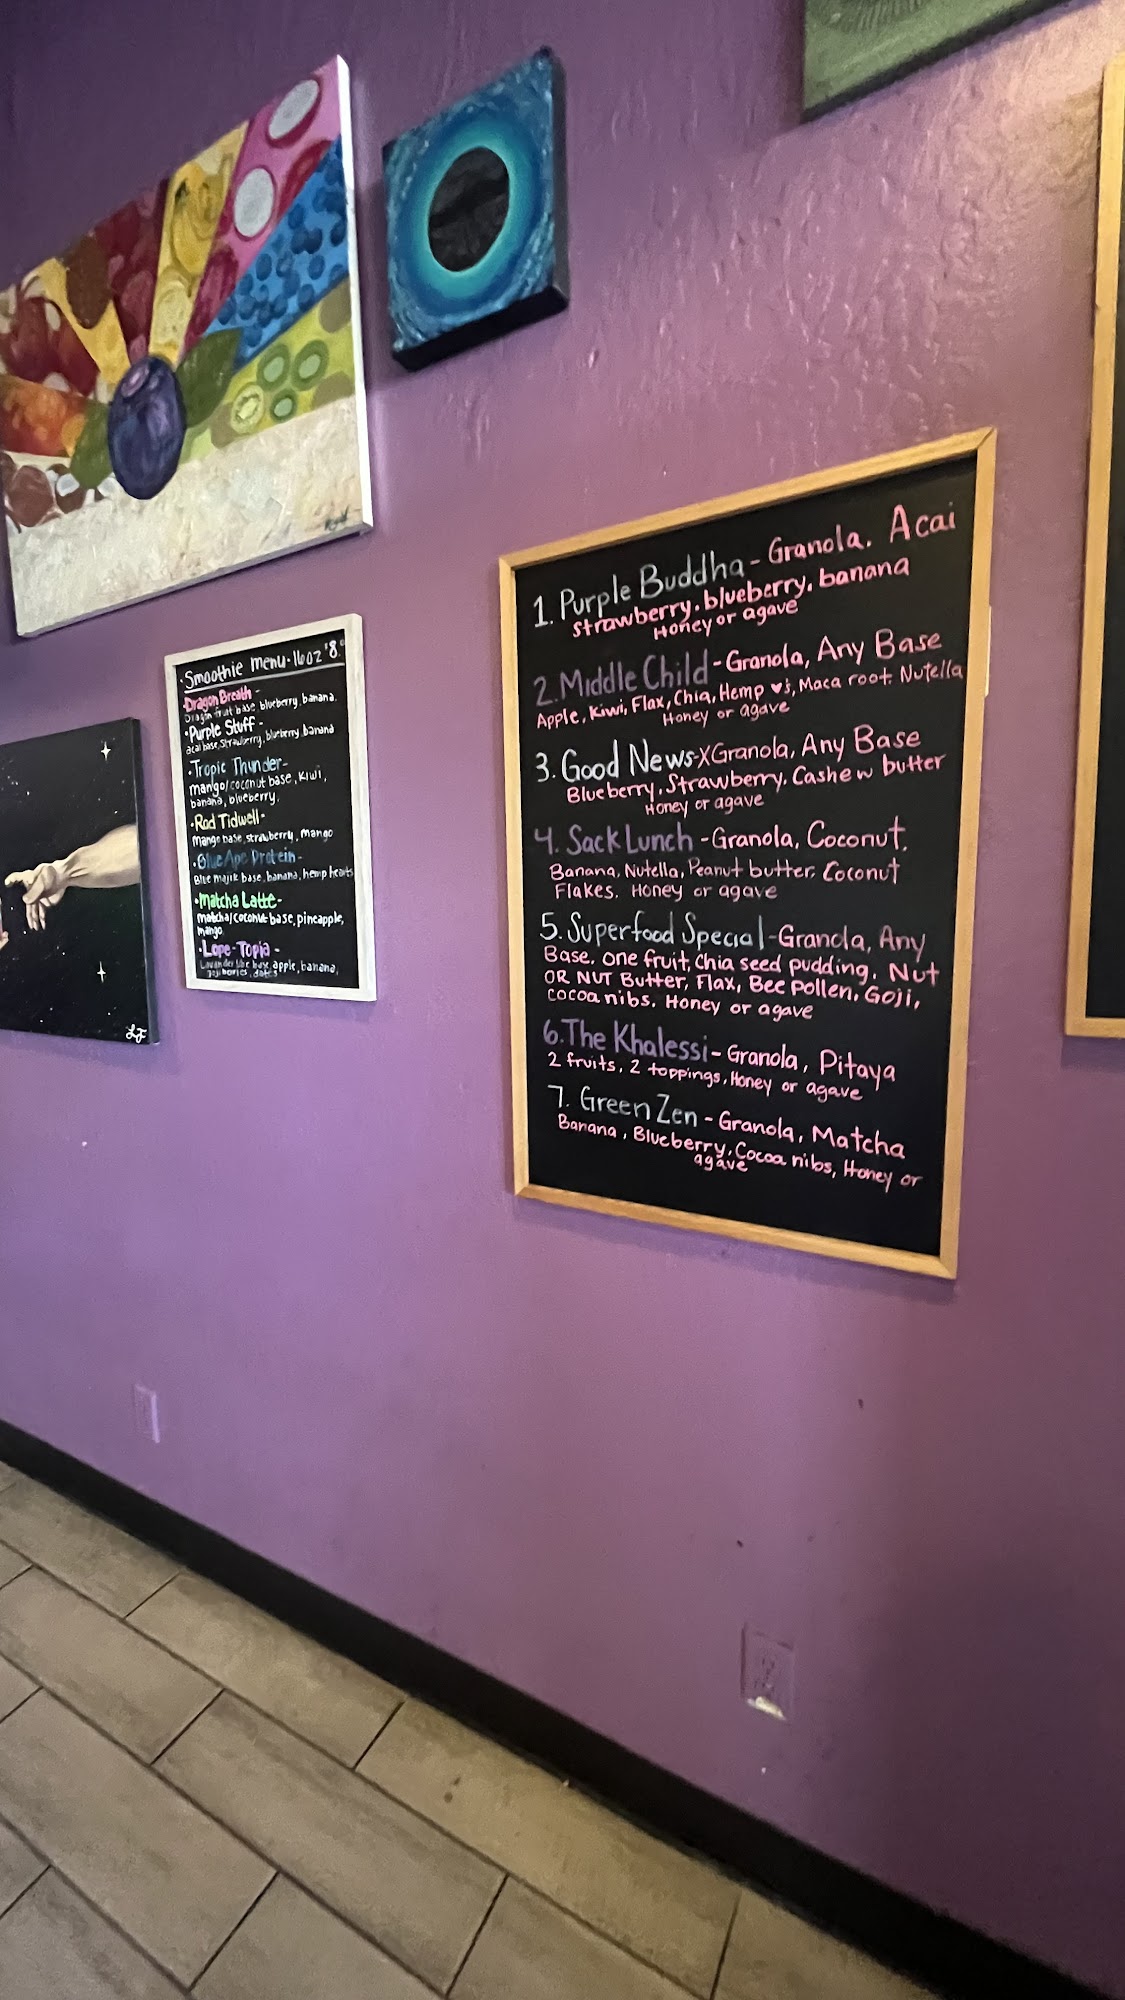 Smoothie menu·16oz $8.00
·Dragon Breath-
Dragon fruit base, blueberry, banana.
·Purple Stuff-
acai base, strawberry, blueberry, banana
·Tropic Thunder-
mango/coconut base, kiwi,
banana, blueberry.
·Rod Tidwell-
mango base, strawberry, mango
·Blue Ape Protein-
Blue majik base, banana, hemp hearts
·Matcha Latte-
matcha/coconut base, pineapple,
mango
·Lope-Topia-
base, apple, banana,
goji berries, dates
LF
1. Purple Buddha - Granola. Acai
Strawberry. blueberry. banana
Honey or agave
2. Middle Child - Granola, Any Base
Apple, Kiwi, Flax, Chia, Hemp ♥'s, Maca root Nutella
Honey or agave
3. Good News-XGranola, Any Base
Blueberry, Strawberry, Cashew butter
Honey or agave
4. Sack Lunch - Granola, Coconut,
Banana, Nutella, Peanut butter. Coconut
Flakes. Honey or agave
5. Superfood Special - Granola, Any
Base. one fruit, Chia seed pudding. Nut
OR NUT Butter, Flax, Bee Pollen, Goji,
cocoa nibs. Honey or agave
6. The Khalessi - Granola, Pitaya
2 fruits, 2 toppings, Honey or agave
7. Green Zen - Granola, Matcha
Banana, Blueberry, Cocoa nibs, Honey or
agave